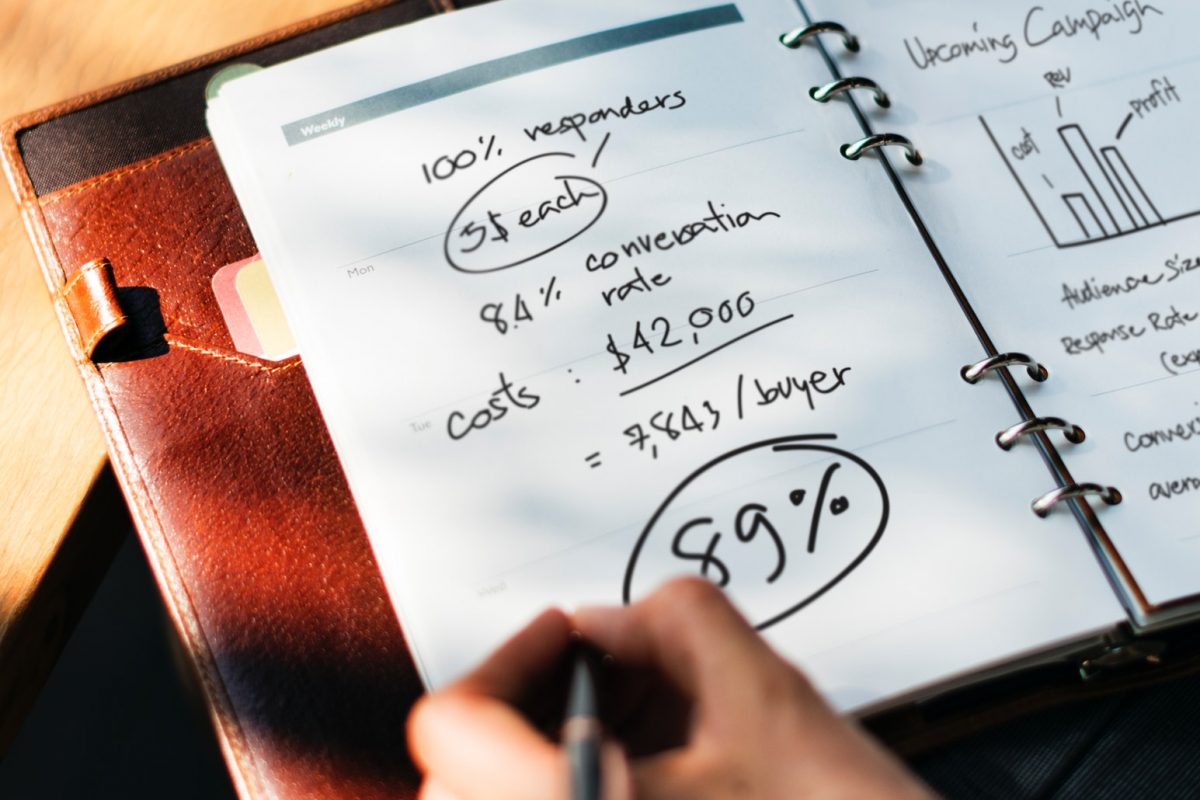 Weekly
100% responders
5$ each
Mon
8.4% conversation
rate
Costs : $42,000
Tue
= 7,843 / buyer
89%
Wed
Upcoming Campaign
Rev
Profit
cost
Audience Size
Response Rate